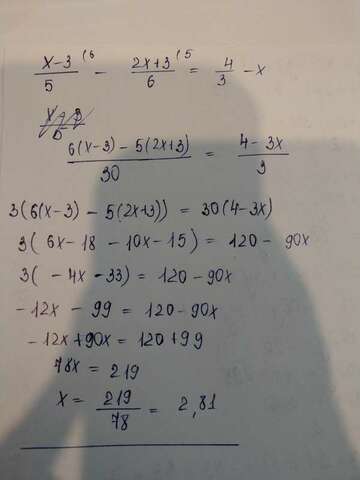 x-3/5 (6 - 2x+3/6 (5 = 4/3 - x
6(x-3) - 5(2x+3)/30 = 4-3x/3
3(6(x-3) - 5(2x+3)) = 30(4-3x)
3( 6x-18 - 10x-15) = 120 - 90x
3( -4x-33) = 120-90x
-12x - 99 = 120-90x
-12x+90x = 120+99
78x = 219
x = 219/78 = 2,81